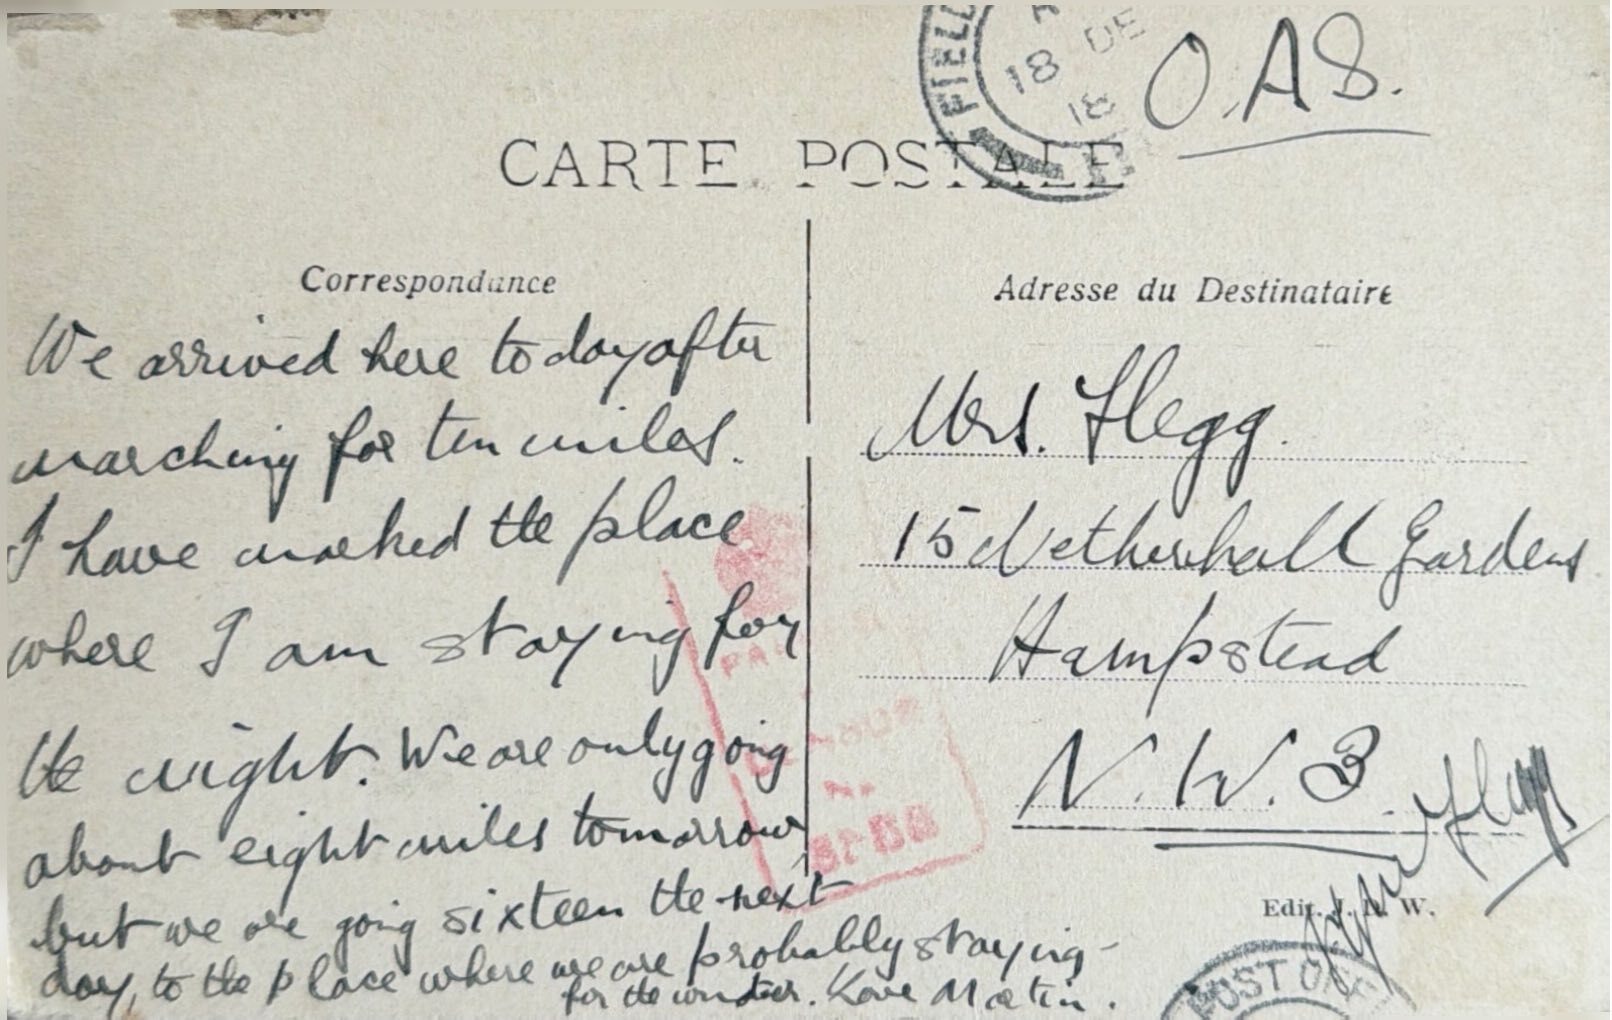 FIELD
18 DE
18
O.A.S.
CARTE POSTALE
Correspondance
We arrived here to day after
marching for ten miles.
I have marked the place
where I am staying for
the night. We are only going
about eight miles tomorrow
but we are going sixteen the next
day, to the place where we are probably staying
for the winter. Love Martin.
Adresse du Destinataire
Mrs. Flegg.
15 Netherhall Gardens
Hampstead
N.W.3.
Flegg
Edit. W.
POST OFFICE